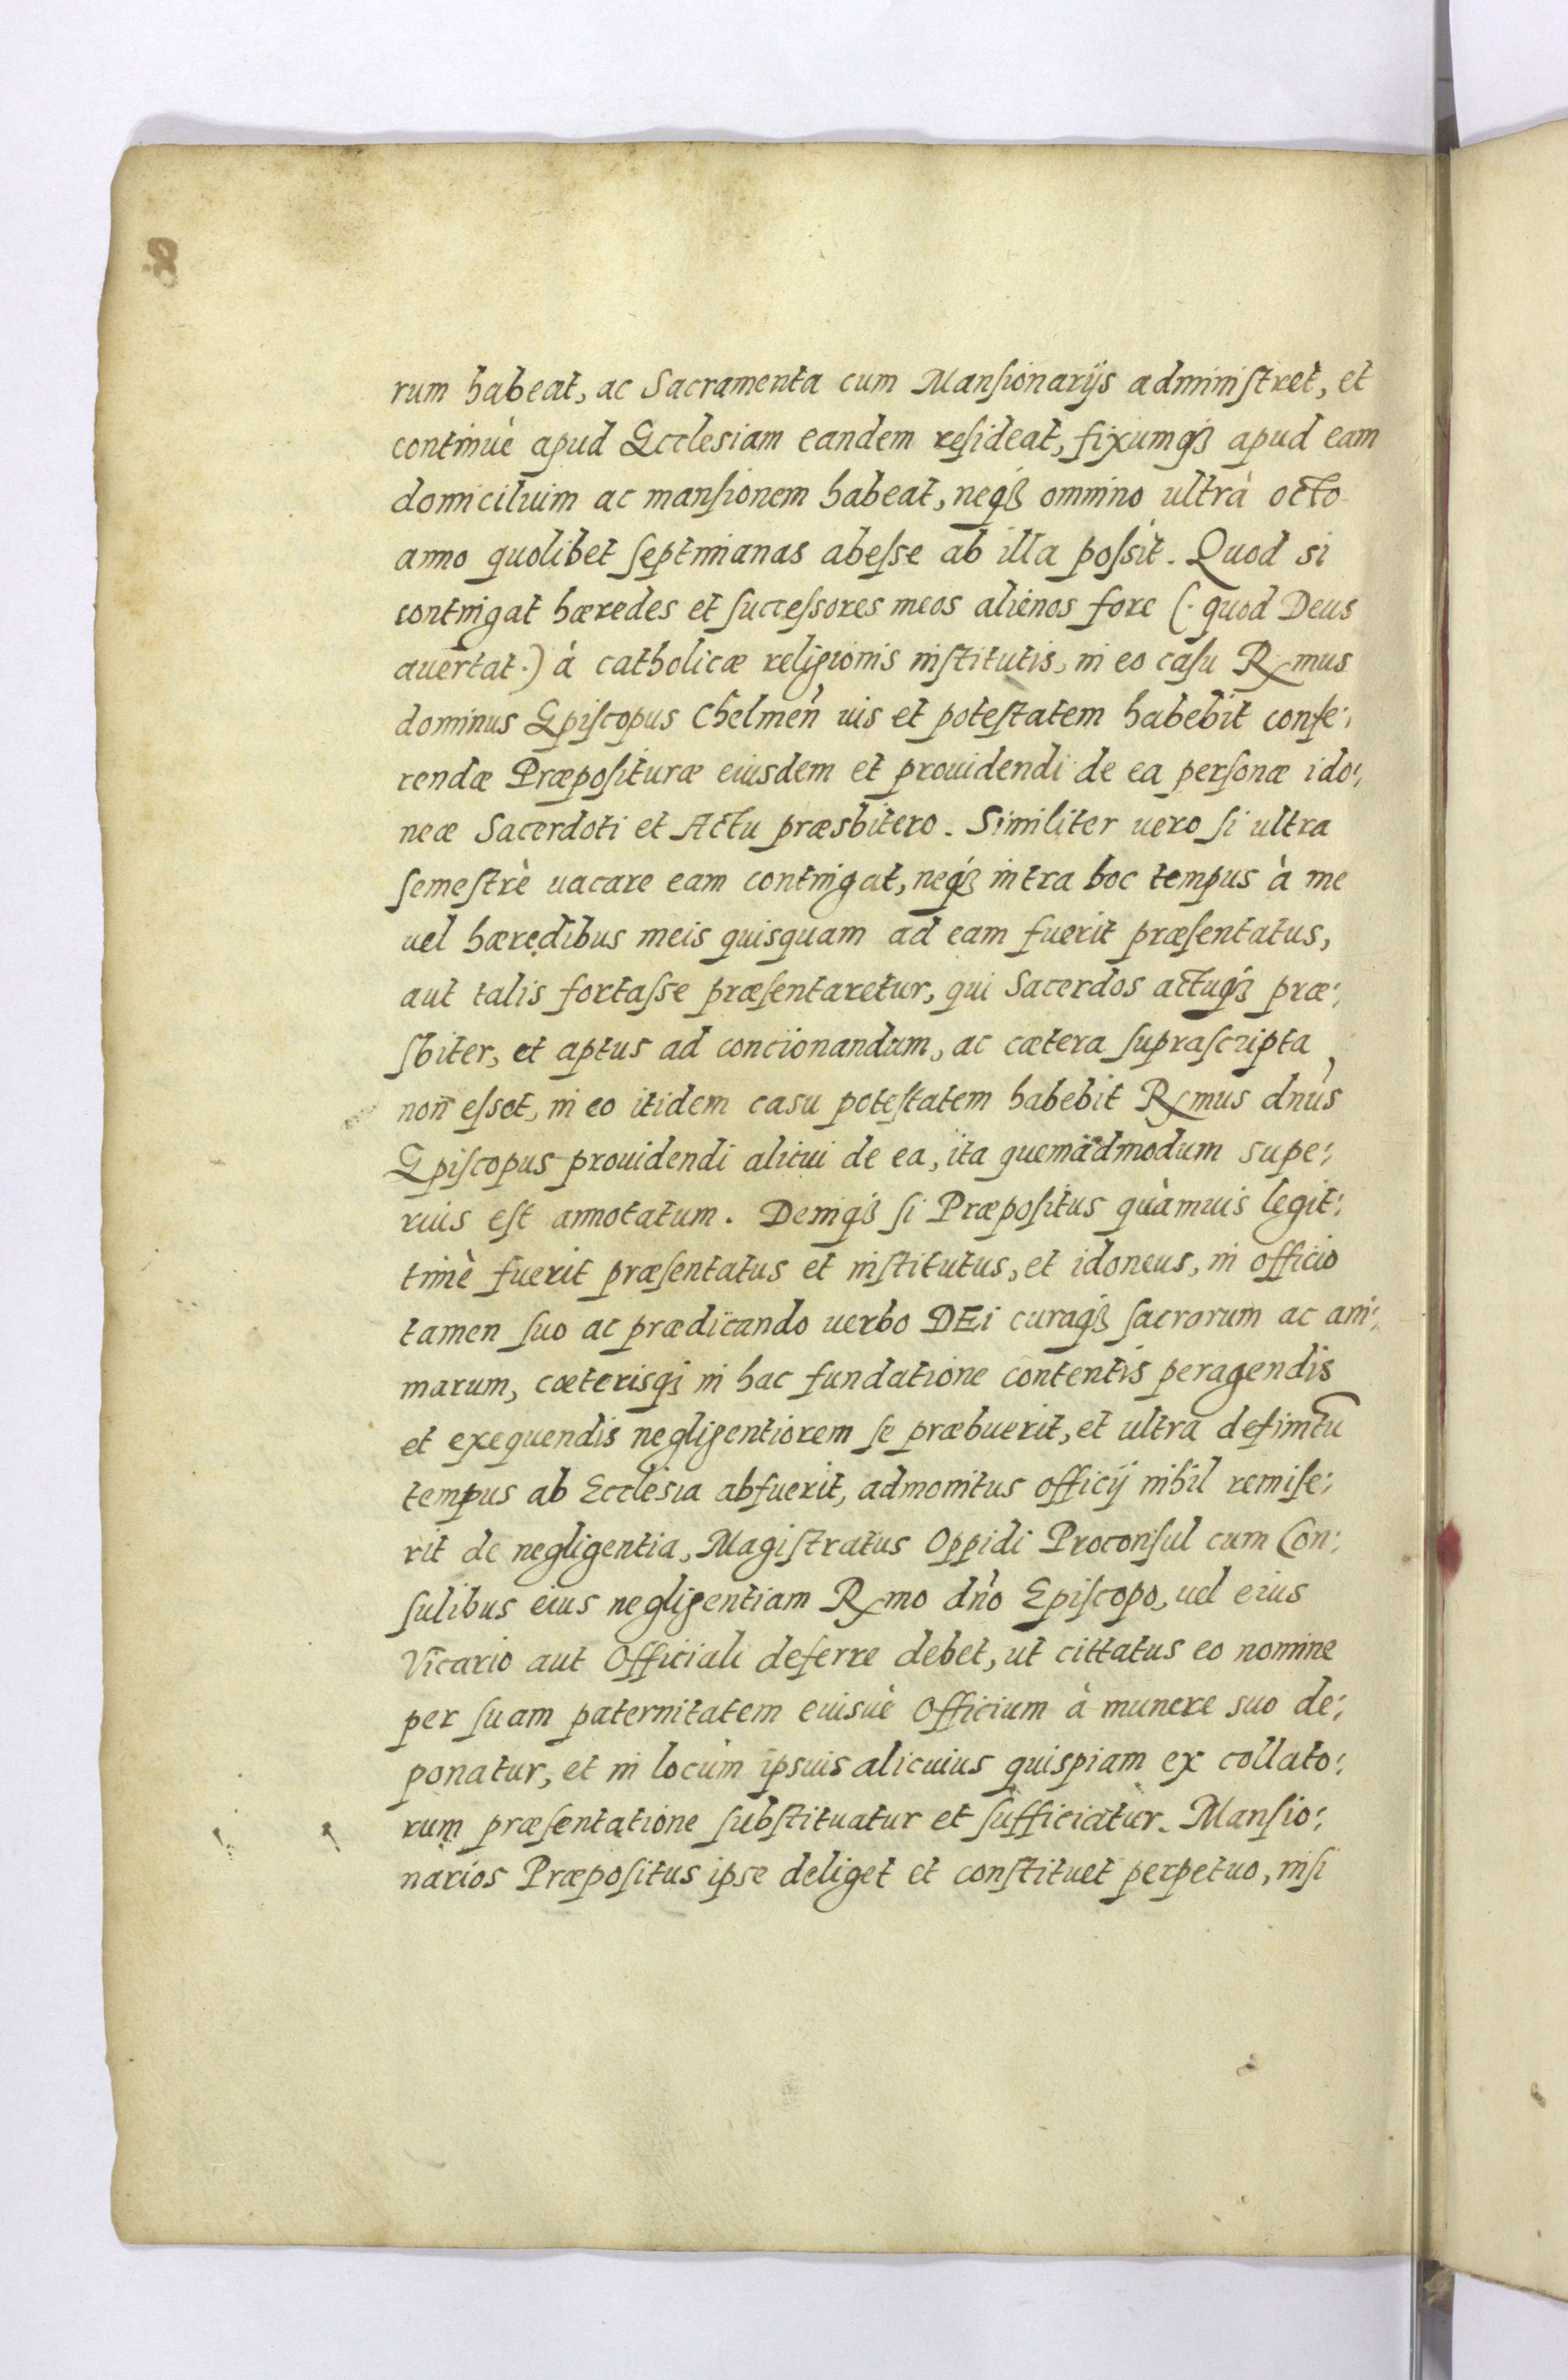 rum habeat, ac Sacramenta cum Mansionarijs administret, et
continuè apud Ecclesiam eandem resideat, fixumq₃ apud eam
domicilium ac mansionem habeat, neq₃ omnino ultrà octo
anno quolibet septimanas abesse ab illa possit. Quod si
contingat hæredes et successores meos alienos fore (. quod Deus
auertat.) à catholicæ religionis institutis, in eo casu Rmus
dominus Episcopus Chelmen̄ uis et potestatem habebit confe:
rendæ Præposituræ eiusdem et prouidendi de ea personæ ido:
neæ Sacerdoti et Actu præsbitero. Similiter uero si ultra
semestrè uacare eam contingat, neq₃ intra hoc tempus à me
uel hæredibus meis quisquam ad eam fuerit præsentatus,
aut talis fortasse præsentaretur, qui Sacerdos actuq₃ præ:
sbiter, et aptus ad concionandum, ac cætera suprascripta
non esset, in eo itidem casu potestatem habebit Rmus dnùs
Episcopus prouidendi alicui de ea, ita quemàdmodum supe:
rius est annotatum. Deniq₃ si Præpositus quàmuis legit:
timè fuerit præsentatus et institutus, et idoneus, in officio
tamen suo ac prædicando uerbo DEi curaq₃ sacrorum ac ani:
marum, cæterisq₃ in hac fundatione contentis peragendis
et exequendis negligentiorem se præbuerit, et ultra definitū
tempus ab Ecclesia abfuerit, admonitus officij nihil remise:
rit de negligentia, Magistratus Oppidi Proconsul cum Con:
sulibus eius negligentiam Rmo dn̄o Episcopo, uel eius
Vicario aut Officiali deferre debet, ut cittatus eo nomine
per suam paternitatem eiusuè Officium à munere suo de:
ponatur, et in locùm ipsius alicuius quispiam ex collato:
rum præsentatione substituatur et sufficiatur. Mansio:
narios Præpositus ipse deliget et constituet perpetuo, nisi